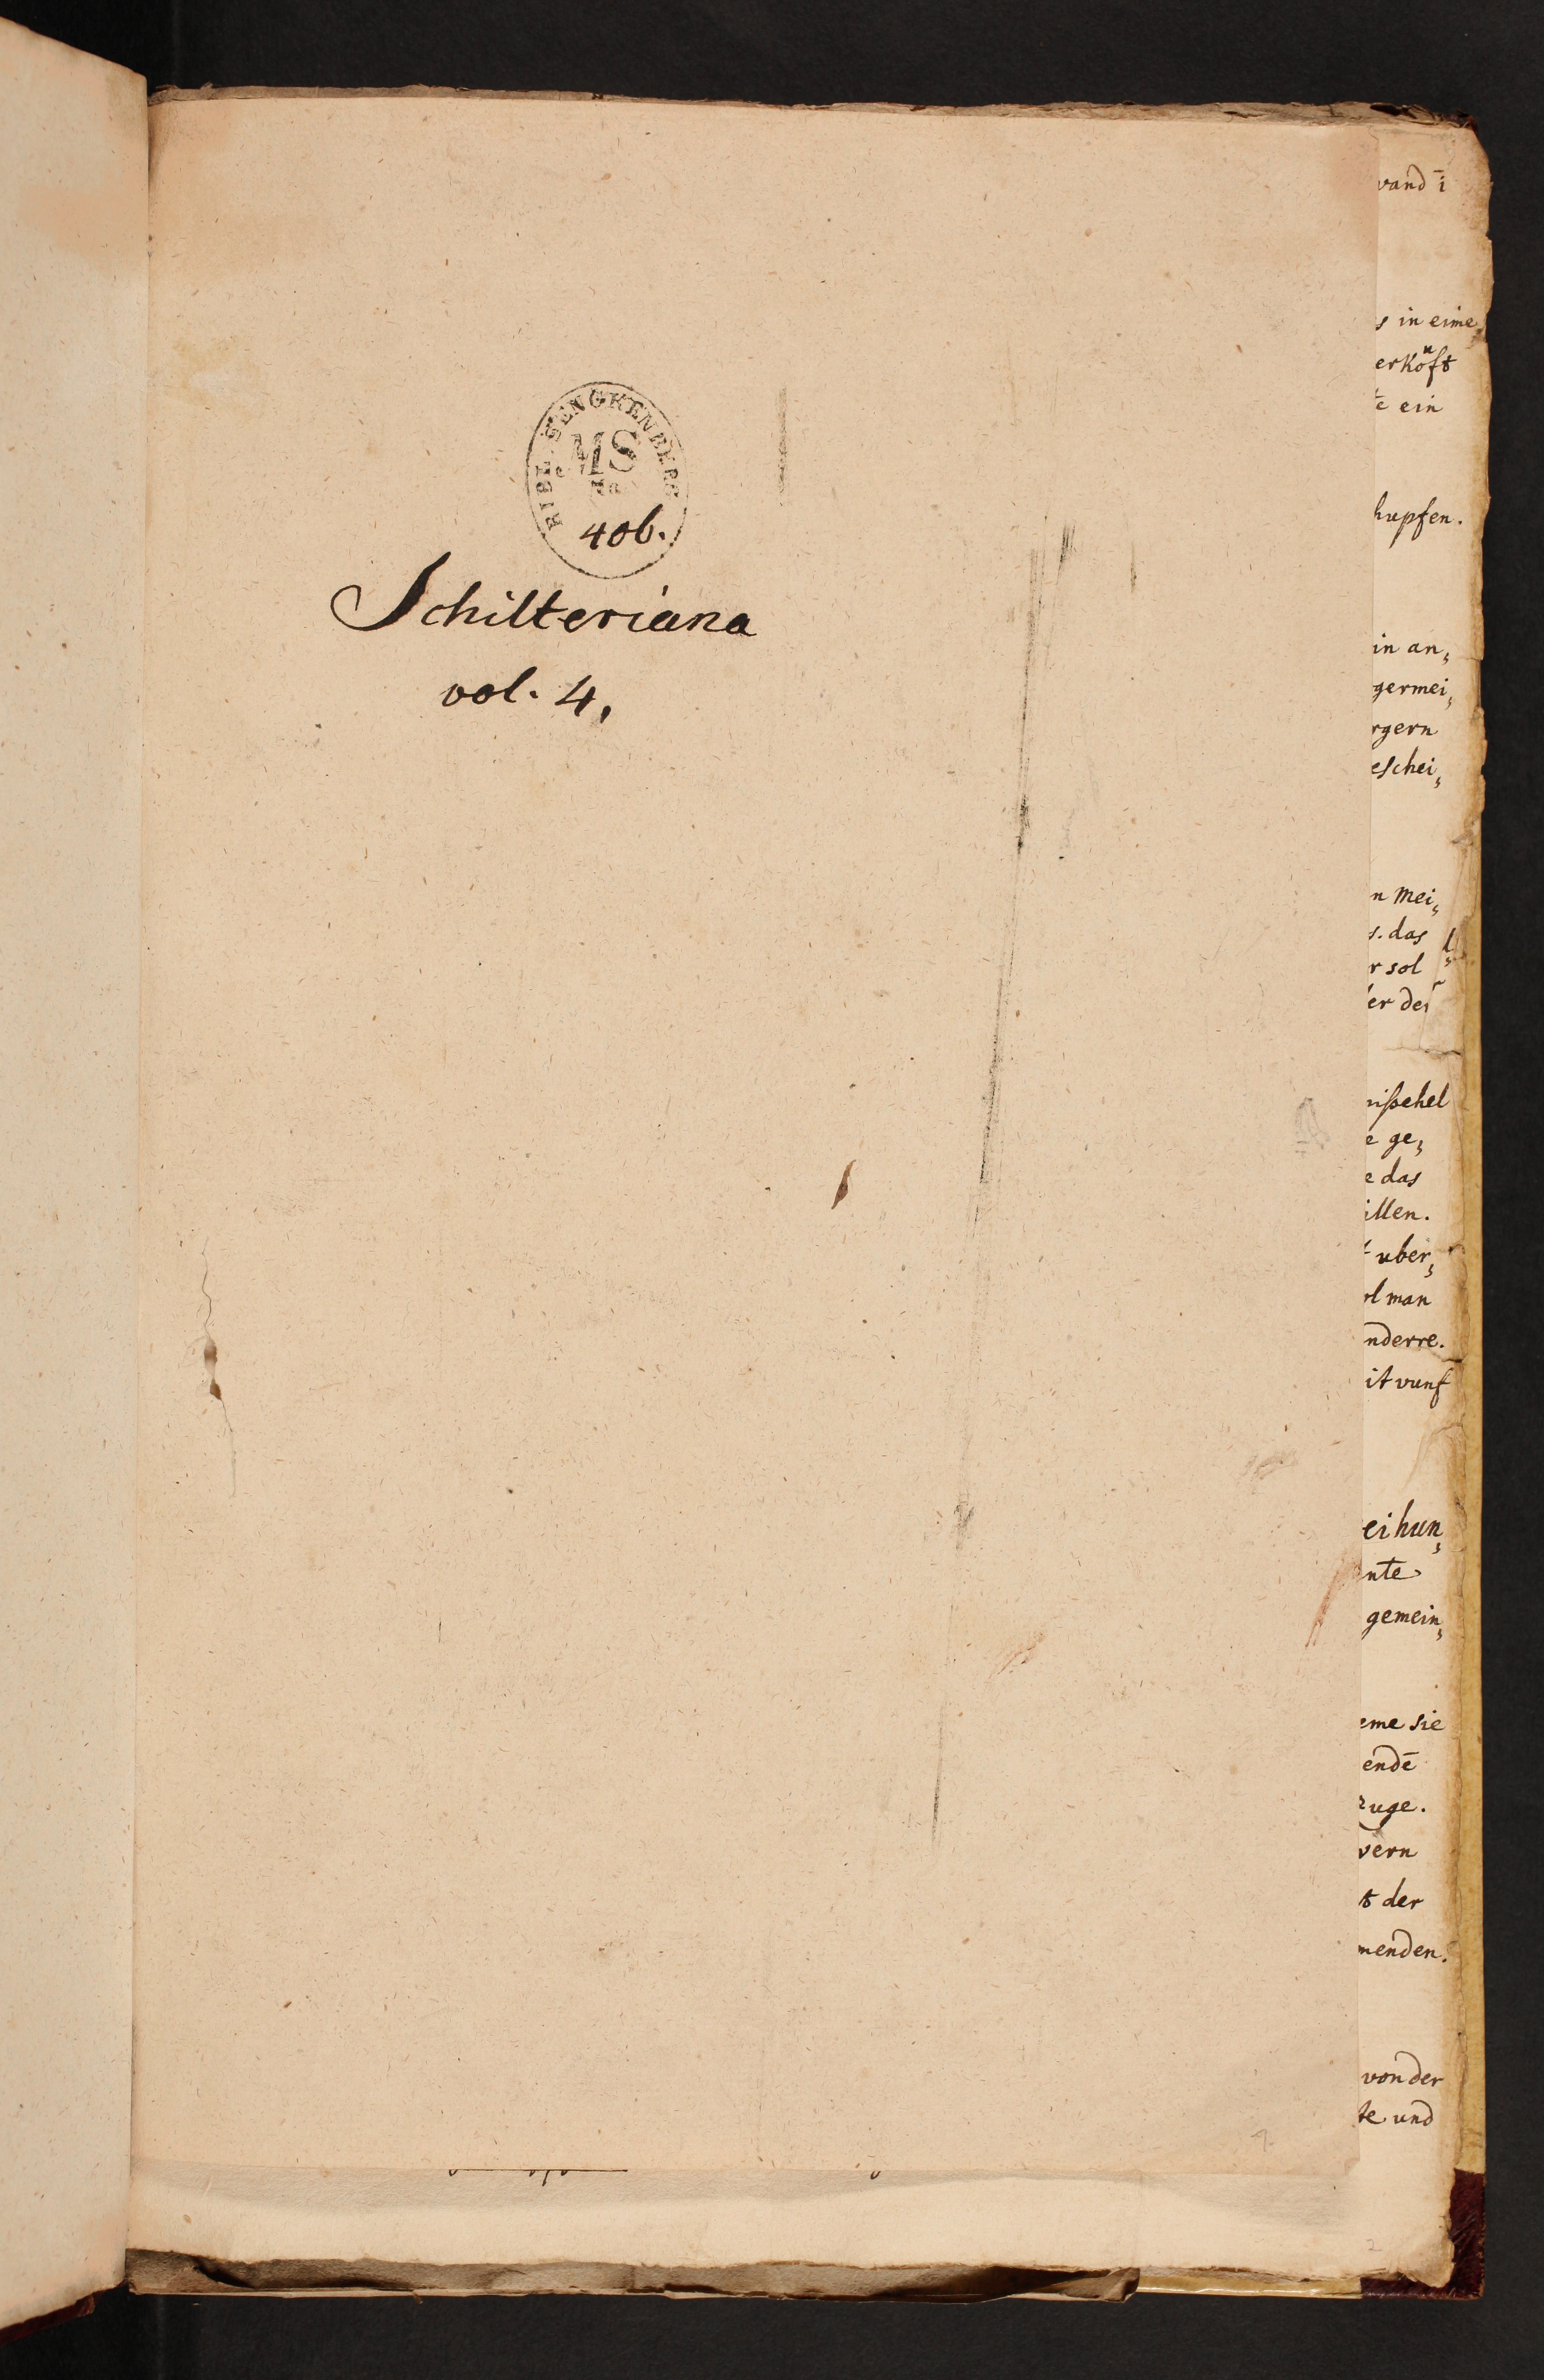 BIBL. SENCKENBERG
MS
No
406.
Schilteriana
vol. 4,
vand i
s in eime
erkoͧft
te ein
hupfen.
in an„
germei„
rgern
eschei„
n Mei„
s. das
r sol
er der
ßehel
e ge„
e das
illen.
uber„
ol man
nderre.
it vunf
ei hun„
nte
gemein„
eme sie
endē
zuge.
vern
t der
menden.
von der
te und
2